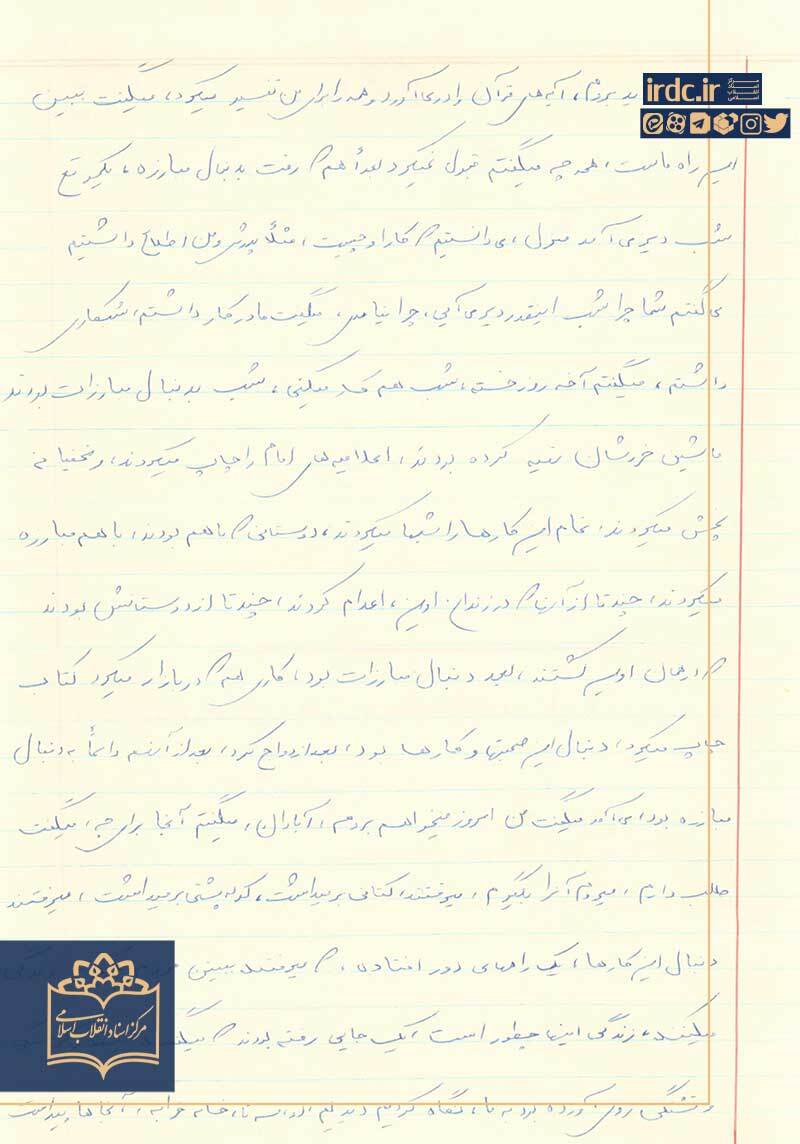 irdc.ir
مرکز اسناد انقلاب اسلامی
ید بروم، آیه‌های قرآن را درمی‌آورد و همه را برای من تفسیر میکرد، میگفت ببین
این راه ماست، هر چه میگفتم قبول نمیکرد بعداً هم که رفت بدنبال مبارزه، یکموقع
شب دیر می‌آمد منزل، می‌دانستیم که کار او چیست، مثلاً پدرش و من اطلاع داشتیم
می‌گفتم شما چرا شب اینقدر دیر می‌آیی، چرا نیامدی، میگفت مادر کار داشتم، شبکاری
داشتم، میگفتم آخه روز خسته، شب هم کار میکنی، شب بدنبال مبارزات بودند
ماشین خودشان تهیه کرده بودند، اعلامیه‌های امام را چاپ میکردند، و مخفیانه
پخش میکردند، تمام این کارها را شبها میکردند، دوستانی که باهم بودند، باهم مبارزه
میکردند، چند تا از آنها که در زندان اوین، اعدام کردند، چند تا از دوستانش بودند
که در همان اوین کشتند، بعد دنبال مبارزات بود، کاری هم که در بازار میکرد کتاب
چاپ میکرد، دنبال این صحبتها و کارها بود، بعد ازدواج کرد، بعد از آن هم دائماً به دنبال
مبارزه بود، می‌آمد میگفت من امروز میخواهم بروم، آبادان، میگفتم آنجا برای چه، میگفت
طلب دارم، میروم آنرا بگیرم، میرفتند، کتانی برمیداشت، کوله‌پشتی برمیداشت، میرفتند
دنبال این کارها، یک راههای دور افتاده، که میرفتند ببین
میکنند، زندگی اینها چطور است، یک جایی رفته بودند که میگفت
و تشنگی روی آورده بود به ما، نگاه کردیم دیدیم، دو سه تا، خانه خرابه، آنجاها پیداست
مرکز اسناد انقلاب اسلامی